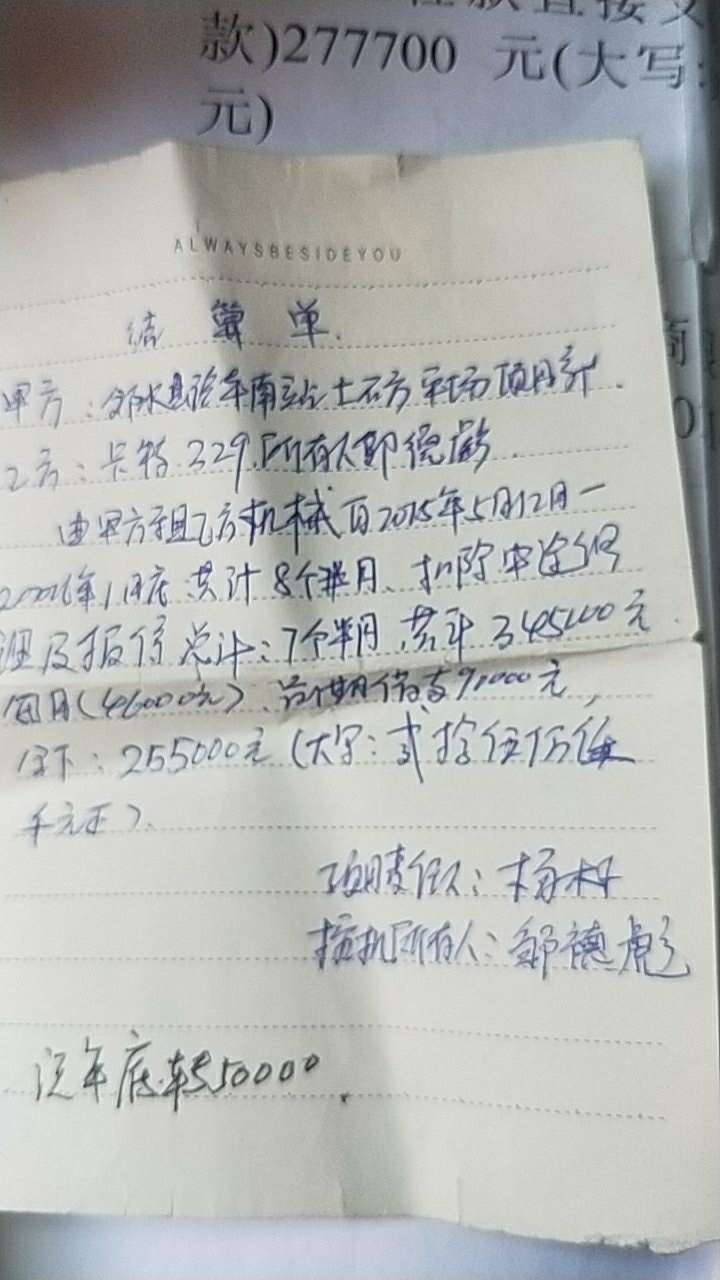 款)277700 元(大写:
元)
ALWAYSBESIDEYOU
结算单.
甲方：邻水县汽车南站土石方平场项目部.
乙方：卡特329所有人邹德彪.
由甲方租乙方机械自2015年5月12日一
2016年1月底共计8个半月、扣除中途
及报停总计：7个半月.共计345000元
每月(46000元).前期借支90000元,
余下：255000元(大写：贰拾伍万伍
千元正).
项目责任人：杨
挖机所有人：邹德彪
年底转50000.